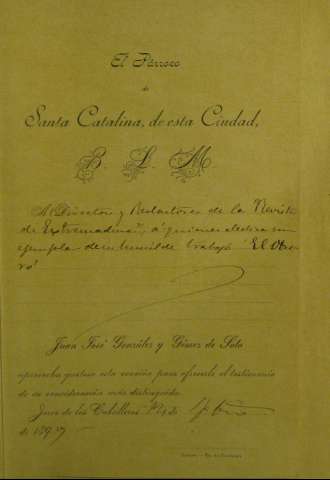 El Párroco
de
Santa Catalina, de esta Ciudad,
B. L. M.
Al Director y Redactores de la Revista
de Extremadura, á quienes dedica un
ejemplar de su humilde trabajo "El Obre-
ro"
Juan José González y Gómez de Soto
aprovecha gustoso esta ocasión para ofrecerle el testimonio
de su consideración más distinguida.
Jerez de los Caballeros,
de 1897